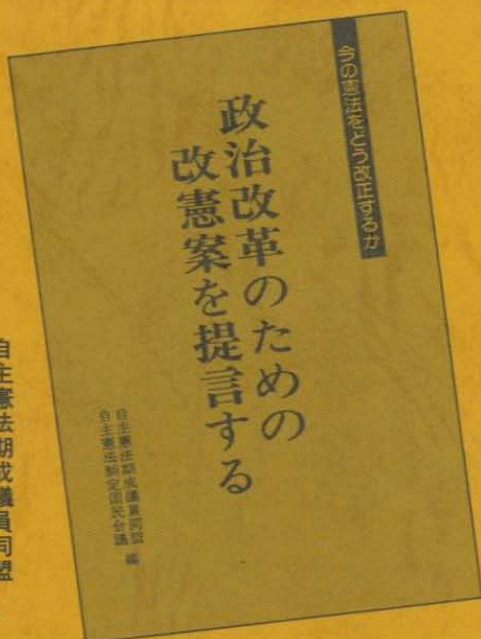 今の憲法をどう改正するか
政治改革のための
改憲案を提言する
自主憲法期成議員同盟
自主憲法制定国民会議
編
自主憲法期成議員同盟